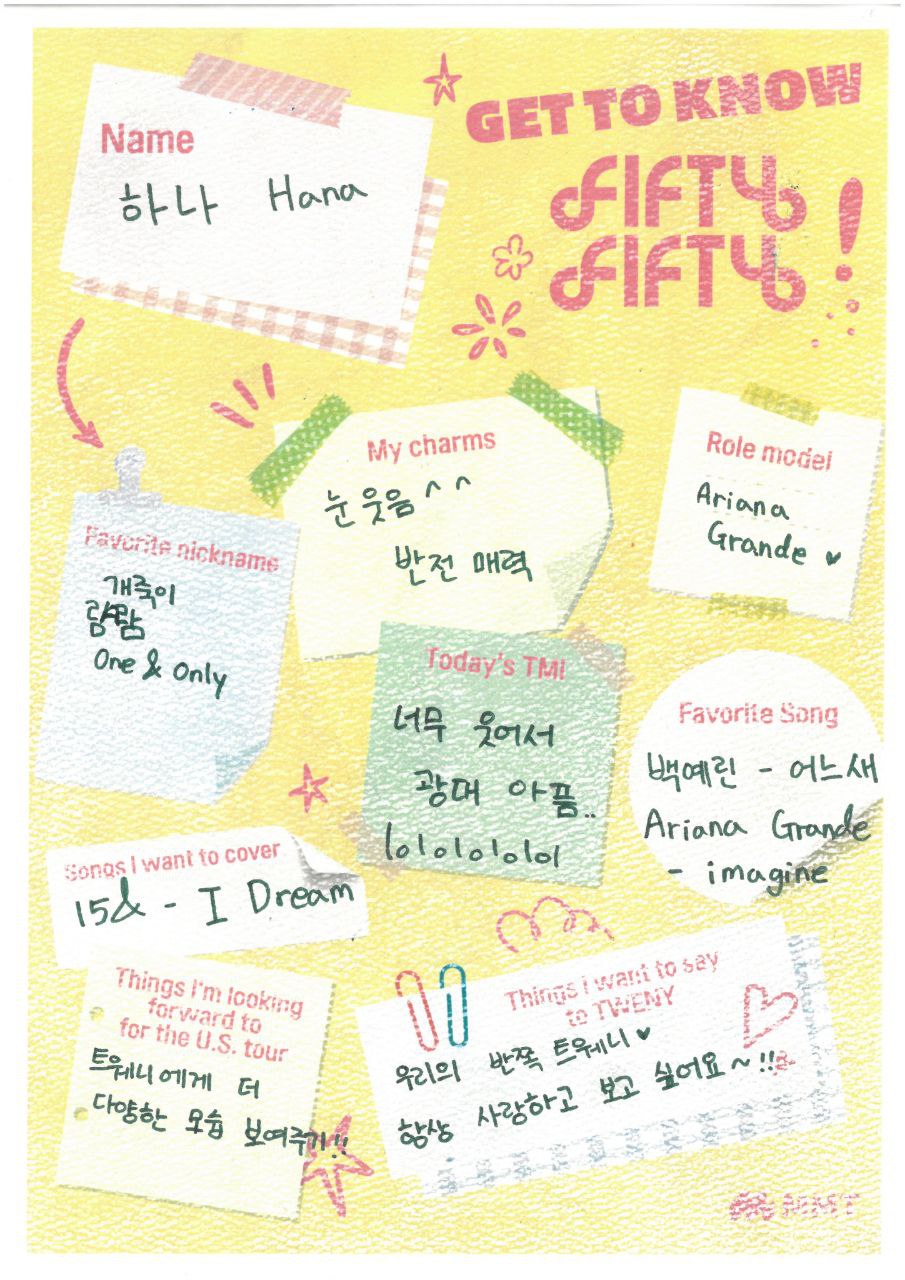 GET TO KNOW
FIFTY
FIFTY
!
Name
하나 Hana
My charms
눈웃음 ^ ^
반전 매력
Role model
Ariana
Grande ♥
Favorite nickname
개죽이
람람
One & Only
Today's TMI
너무 웃어서
광대 아픔..
ㅏㅇㅏㅇㅏㅇㅏㅇㅏㅇㅏ
Favorite Song
백예린 - 어느새
Ariana Grande
- imagine
Songs I want to cover
15& - I Dream
Things I'm looking
forward to
for the U.S. tour
트웨니에게 더
다양한 모습 보여주기!!
Things I want to say
to TWENY
우리의 반쪽 트웨니♥
항상 사랑하고 보고 싶어요~!!
MMT